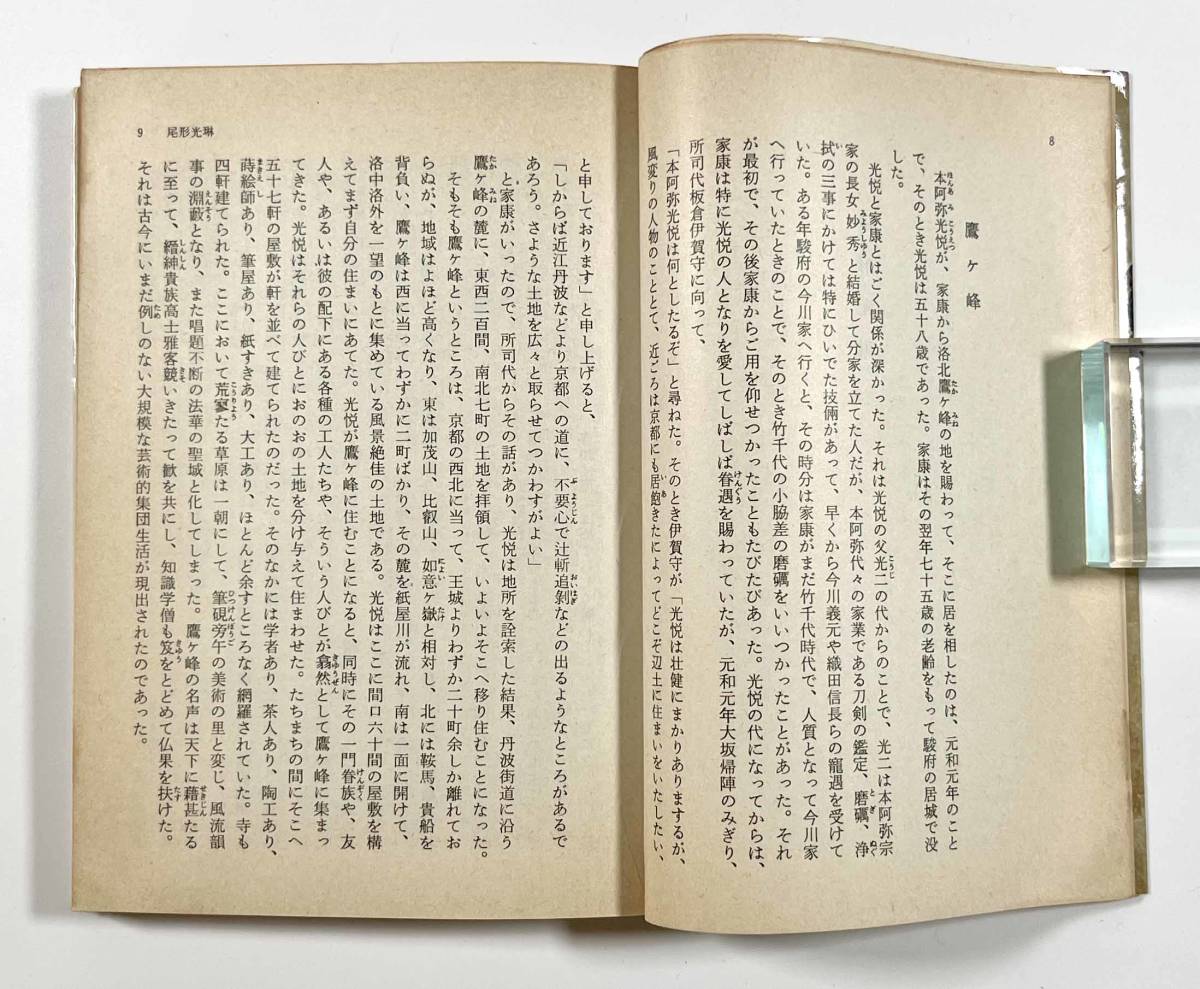 8
鷹ヶ峰
本阿弥光悦が、家康から洛北鷹ヶ峰の地を賜わって、そこに居を相したのは、元和元年のこと
で、そのとき光悦は五十八歳であった。家康はその翌年七十五歳の老齢をもって駿府の居城で没
した。
光悦と家康とはごく関係が深かった。それは光悦の父光二の代からのことで、光二は本阿弥宗
家の長女妙秀と結婚して分家を立てた人だが、本阿弥代々の家業である刀剣の鑑定、磨礪、浄
拭の三事にかけては特にひいでた技倆があって、早くから今川義元や織田信長らの寵遇を受けて
いた。ある年駿府の今川家へ行くと、その時分は家康がまだ竹千代時代で、人質となって今川家
へ行っていたときのことで、そのとき竹千代の小脇差の磨礪をいいつかったことがあった。それ
が最初で、その後家康からご用を仰せつかったこともたびたびあった。光悦の代になってからは、
家康は特に光悦の人となりを愛してしばしば眷遇を賜わっていたが、元和元年大坂帰陣のみぎり、
所司代板倉伊賀守に向って、
「本阿弥光悦は何としたるぞ」と尋ねた。そのとき伊賀守が「光悦は壮健にまかりありまするが、
風変りの人物のこととて、近ごろは京都にも居飽きたによってどこぞ辺土に住まいをいたしたい、
9 尾形光琳
と申しております」と申し上げると、
「しからば近江丹波などより京都への道に、不要心で辻斬追剝などの出るようなところがあるで
あろう。さような土地を広々と取らせてつかわすがよい」
と家康がいったので、所司代からその話があり、光悦は地所を詮索した結果、丹波街道に沿う
鷹ヶ峰の麓に、東西二百間、南北七町の土地を拝領して、いよいよそこへ移り住むことになった。
そもそも鷹ヶ峰というところは、京都の西北に当って、王城よりわずか二十町余しか離れてお
らぬが、地域はよほど高くなり、東は加茂山、比叡山、如意ヶ嶽と相対し、北には鞍馬、貴船を
背負い、鷹ヶ峰は西に当ってわずかに二町ばかり、その麓を紙屋川が流れ、南は一面に開けて、
洛中洛外を一望のもとに集めている風景絶佳の土地である。光悦はここに間口六十間の屋敷を構
えてまず自分の住まいにあてた。光悦が鷹ヶ峰に住むことになると、同時にその一門眷族や、友
人や、あるいは彼の配下にある各種の工人たちや、そういう人びとが翕然として鷹ヶ峰に集まっ
てきた。光悦はそれらの人びとにおのおの土地を分け与えて住まわせた。たちまちの間にそこへ
五十七軒の屋敷が軒を並べて建てられたのだった。そのなかには学者あり、茶人あり、陶工あり、
蒔絵師あり、筆屋あり、紙すきあり、大工あり、ほとんど余すところなく網羅されていた。寺も
四軒建てられた。ここにおいて荒寥たる草原は一朝にして、筆硯旁午の美術の里と変じ、風流韻
事の淵藪となり、また唱題不断の法華の聖域と化してしまった。鷹ヶ峰の名声は天下に藉甚たる
に至って、縉紳貴族高士雅客競いきたって歓を共にし、知識学僧も笈をとどめて仏果を扶けた。
それは古今にいまだ例しのない大規模な芸術的集団生活が現出されたのであった。